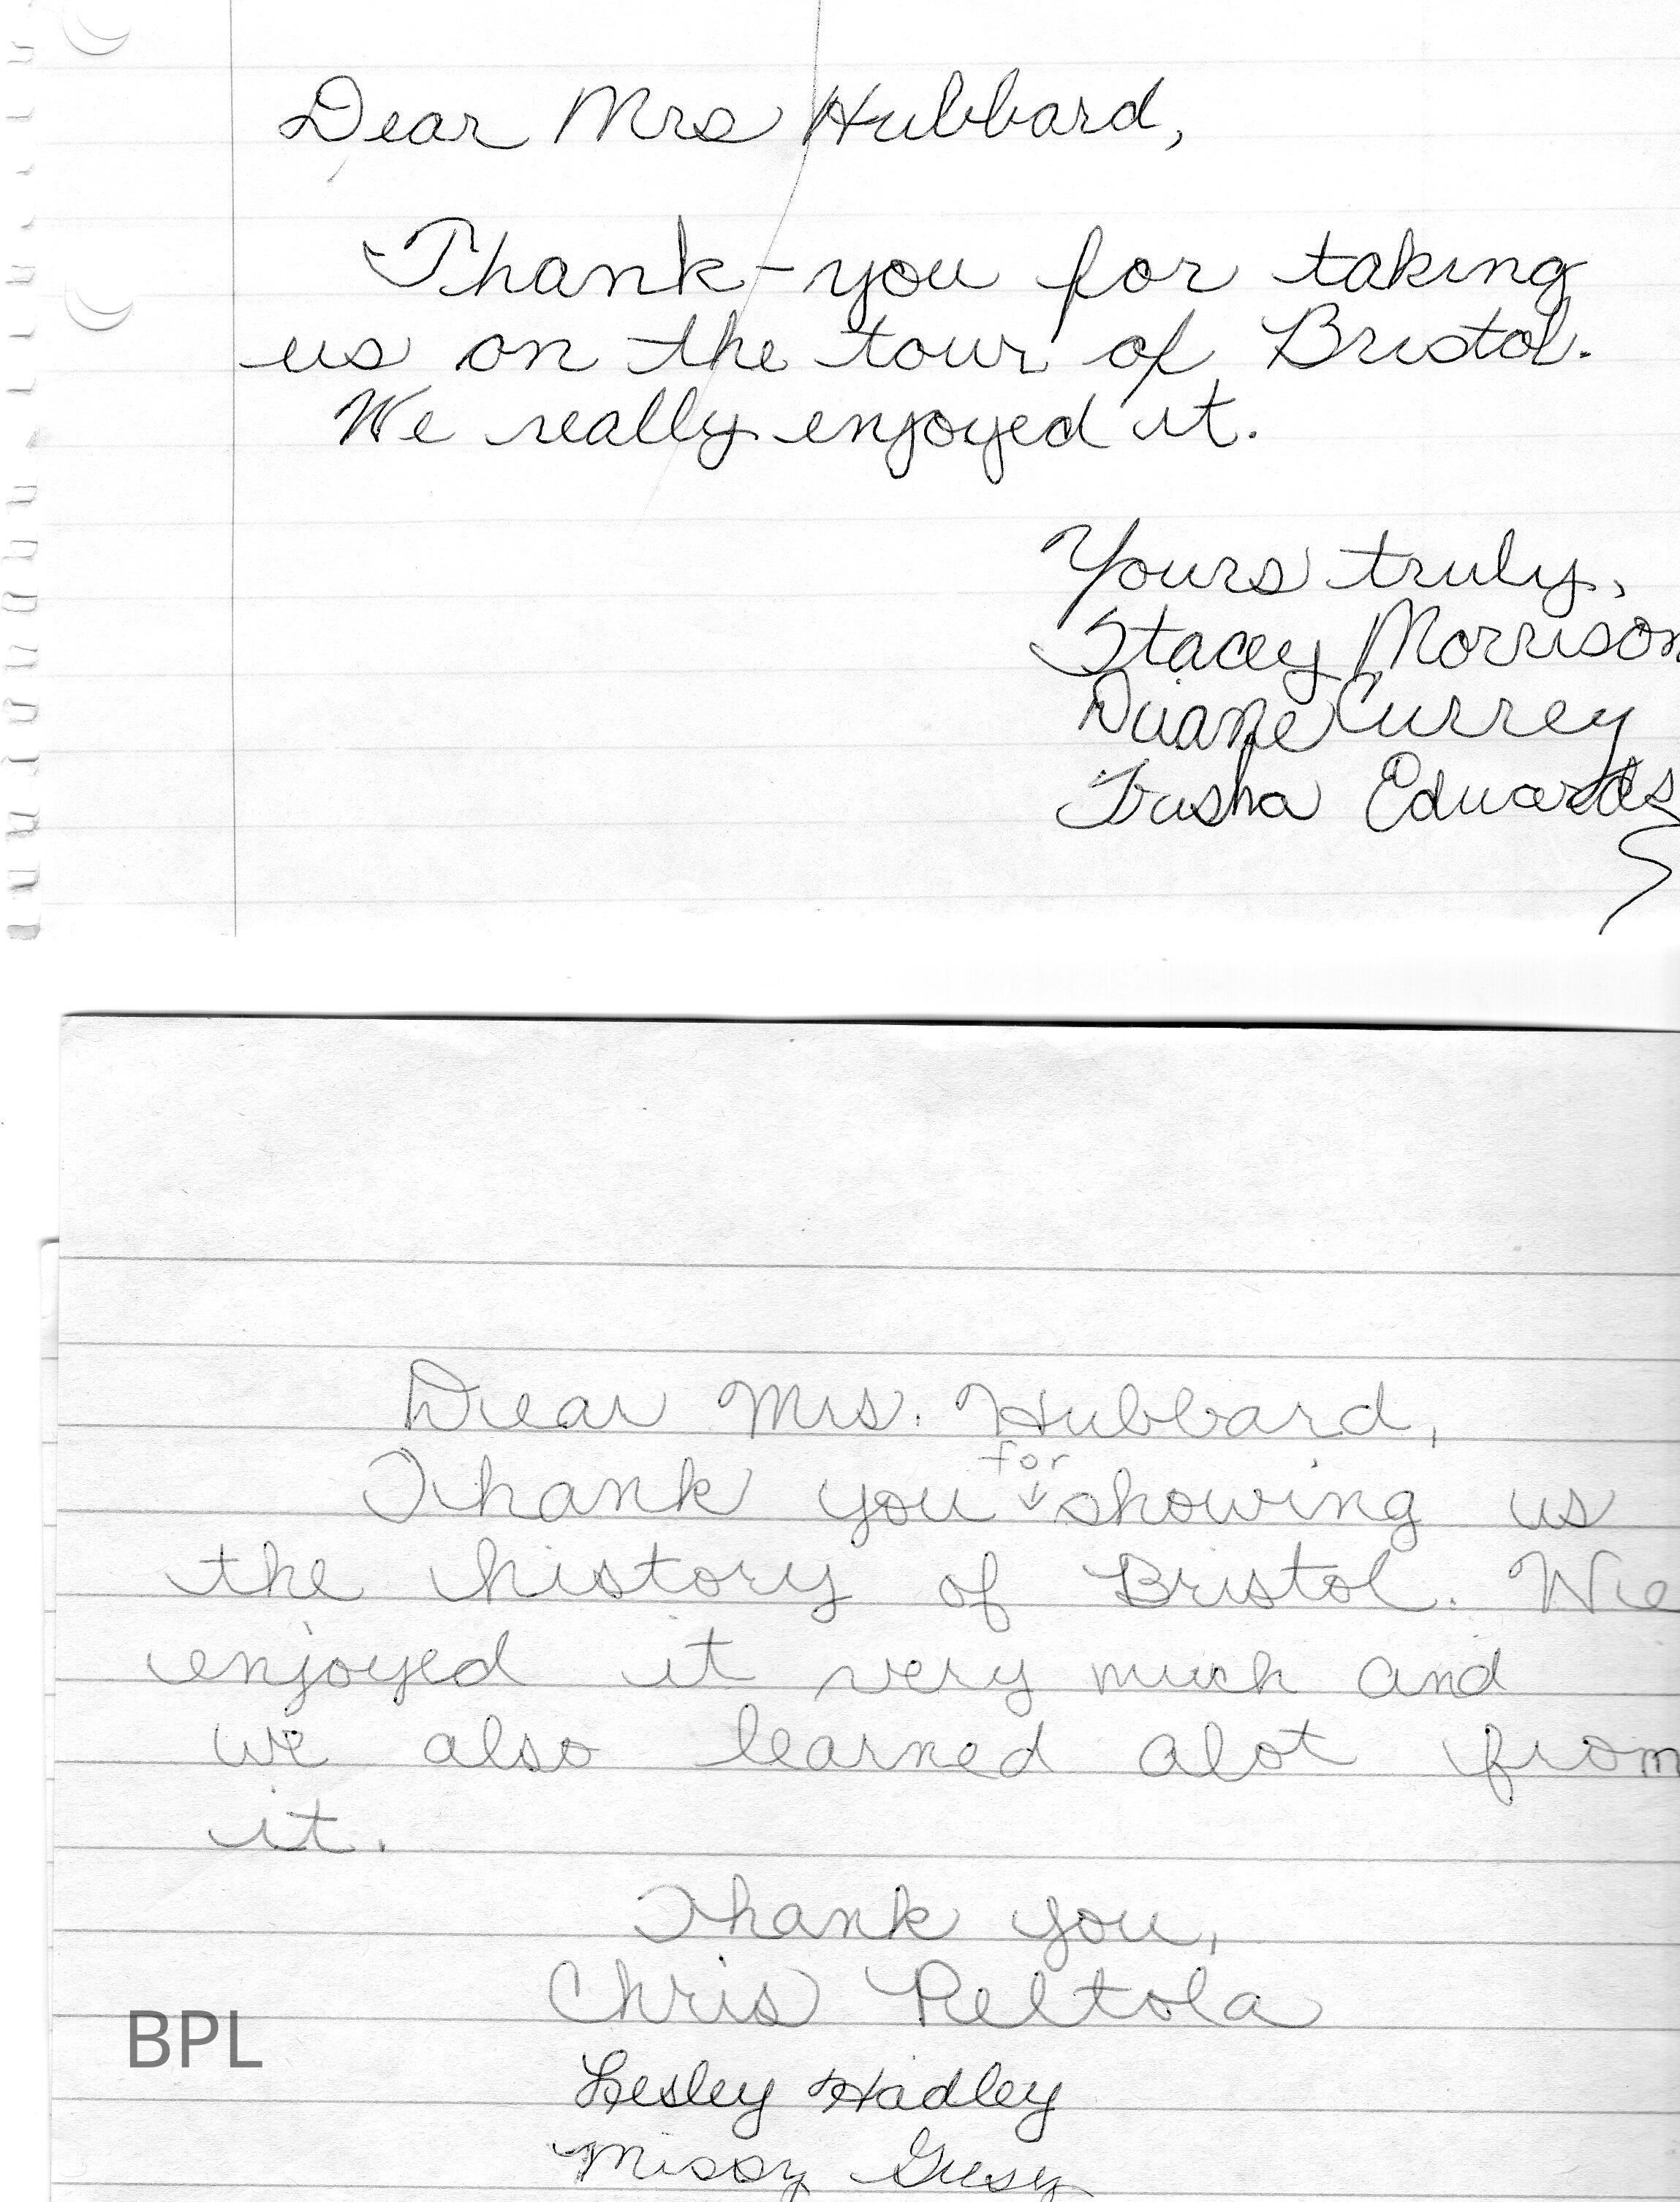 Dear Mrs Hubbard,
Thank-you for taking
us on the tour of Bristol.
We really enjoyed it.
Yours truly,
Stacey Morrison
Duane Currey
Trisha Edwards
Dear Mrs. Hubbard,
for
Thank you ↓ showing us
the history of Bristol. We
enjoyed it very much and
we also learned alot from
it.
Thank you,
Chris Peltola
BPL
Lesley Hadley
Missy